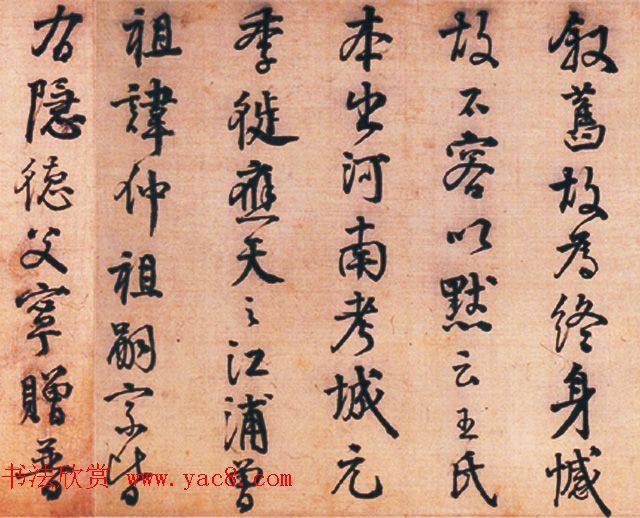 叙舊故為終身憾
故不容以默云王氏
本出河南考城元
季徙應天之江浦曾
祖諱仲祖嗣宗皆
有隱德父寧贈普
书法欣赏 www.yac8.com